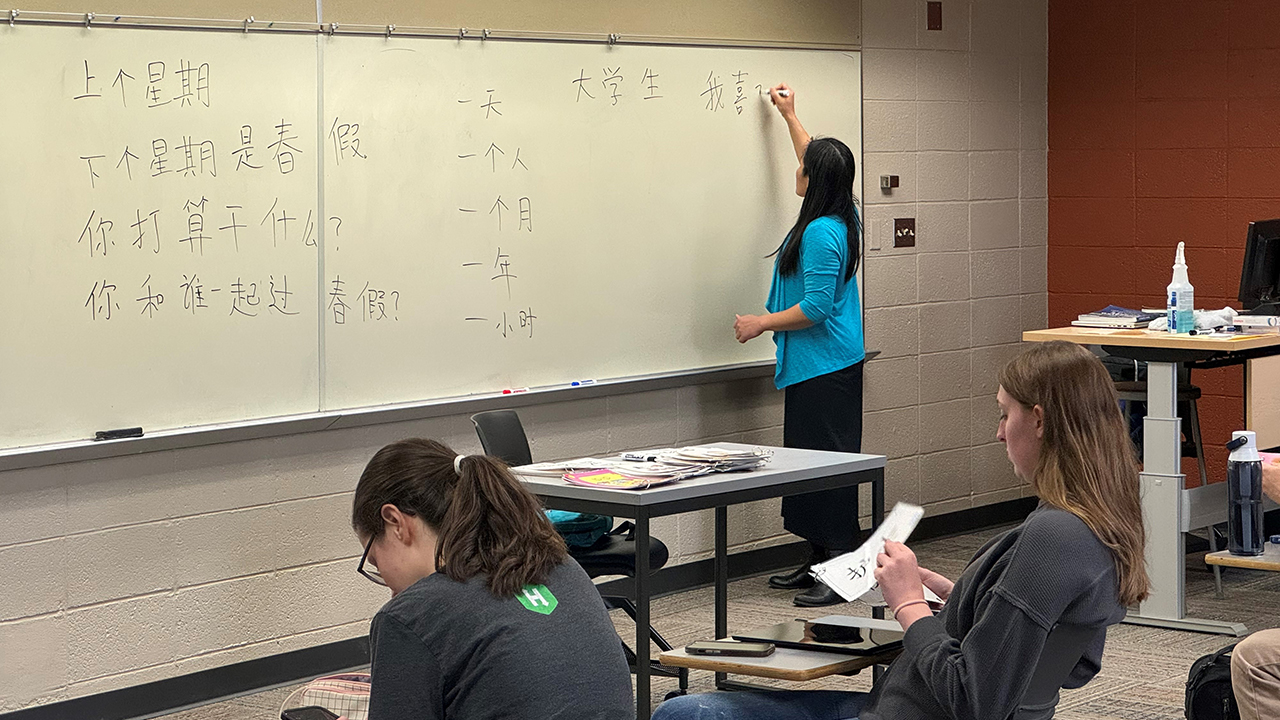 上个星期
下个星期是春假
你打算干什么?
你和谁一起过春假?
一天
一个人
一个月
一年
一小时
大学生 我喜
H